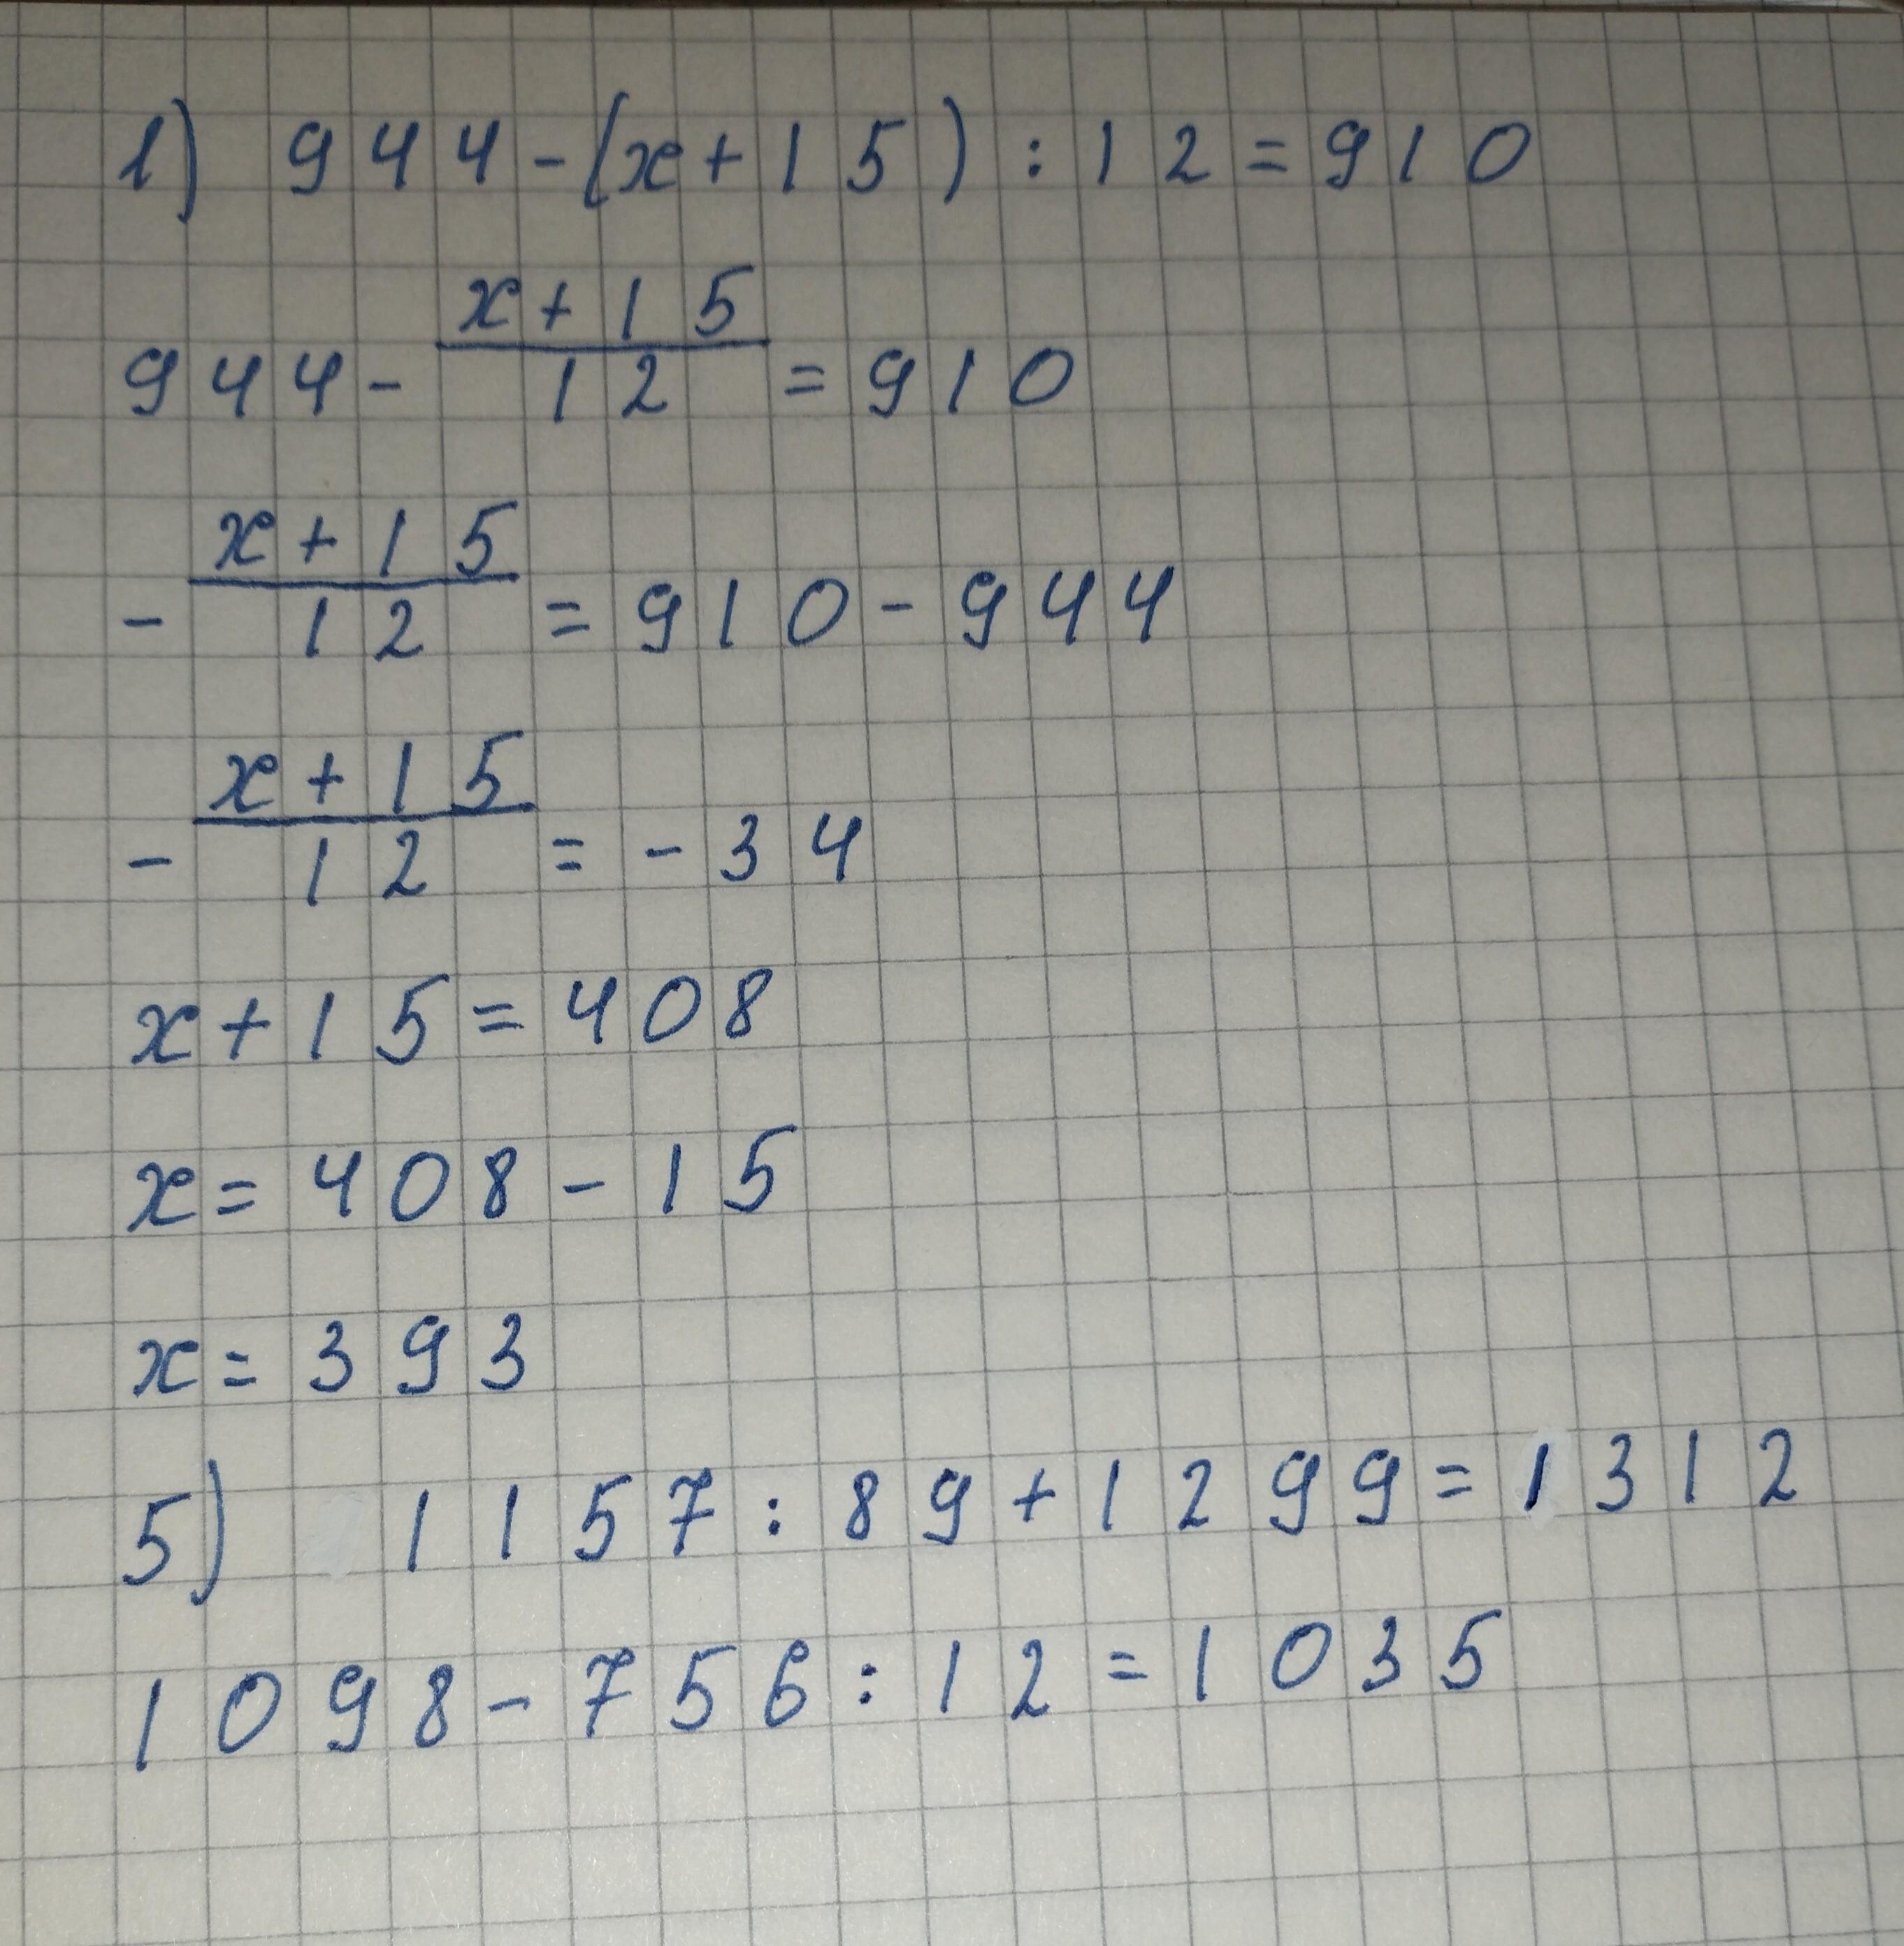 1) 944-(x+15):12=910
944-\frac{x+15}{12}=910
-\frac{x+15}{12}=910-944
-\frac{x+15}{12}=-34
x+15=408
x=408-15
x=393
5) 1157:89+1299=1312
1098-756:12=1035